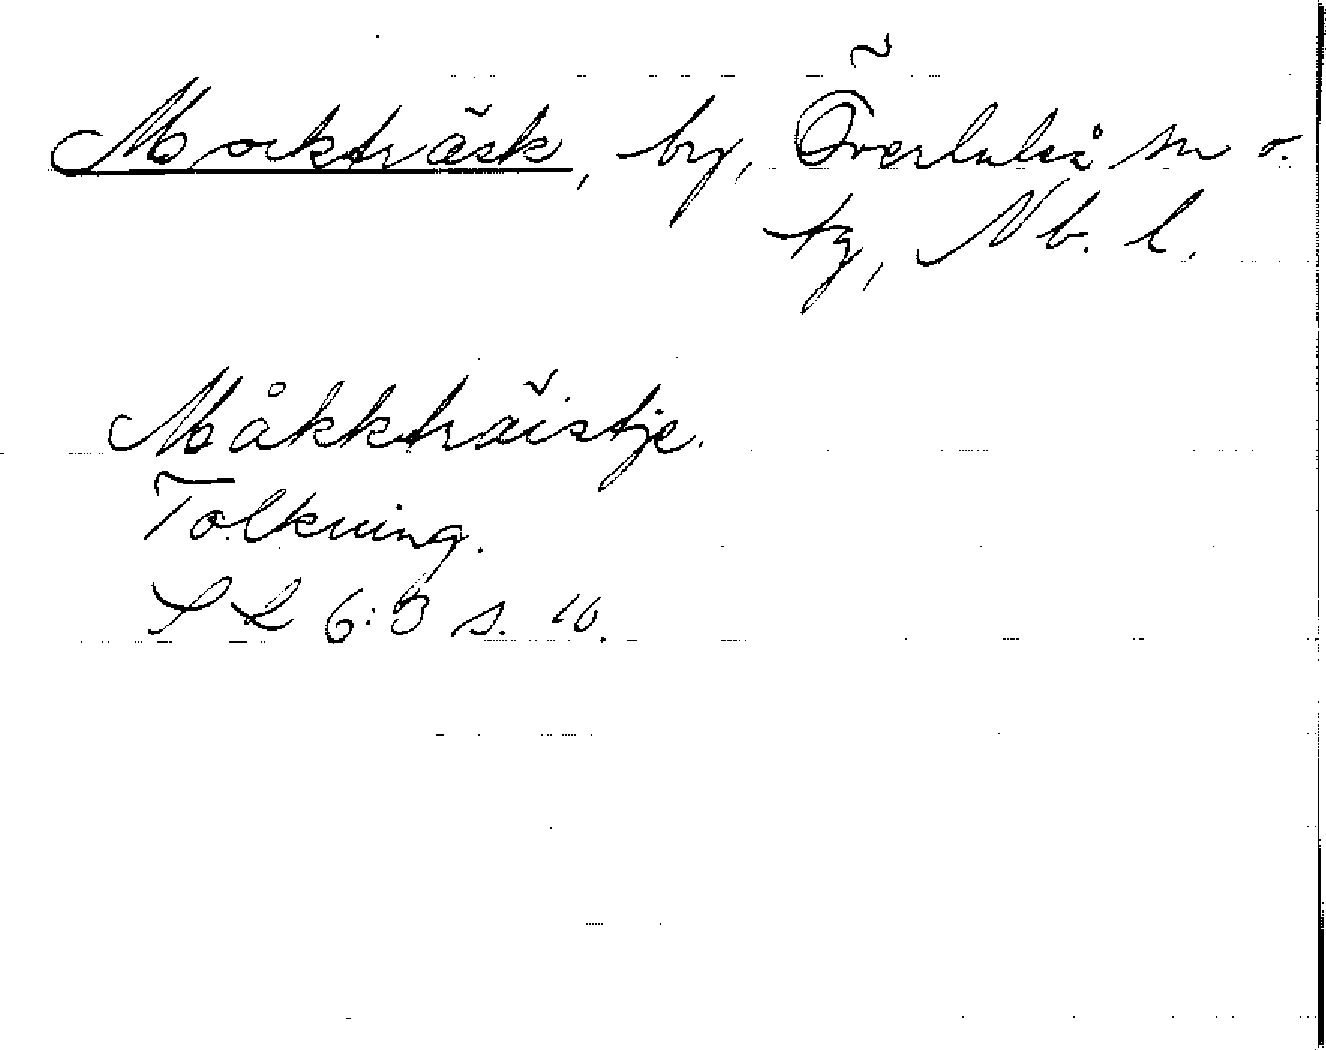 Mockträsk, by, Överluleå sn o.
tg, Nb. l.
Måkkträistje.
Tolkning.
SL 6:3 s. 10.